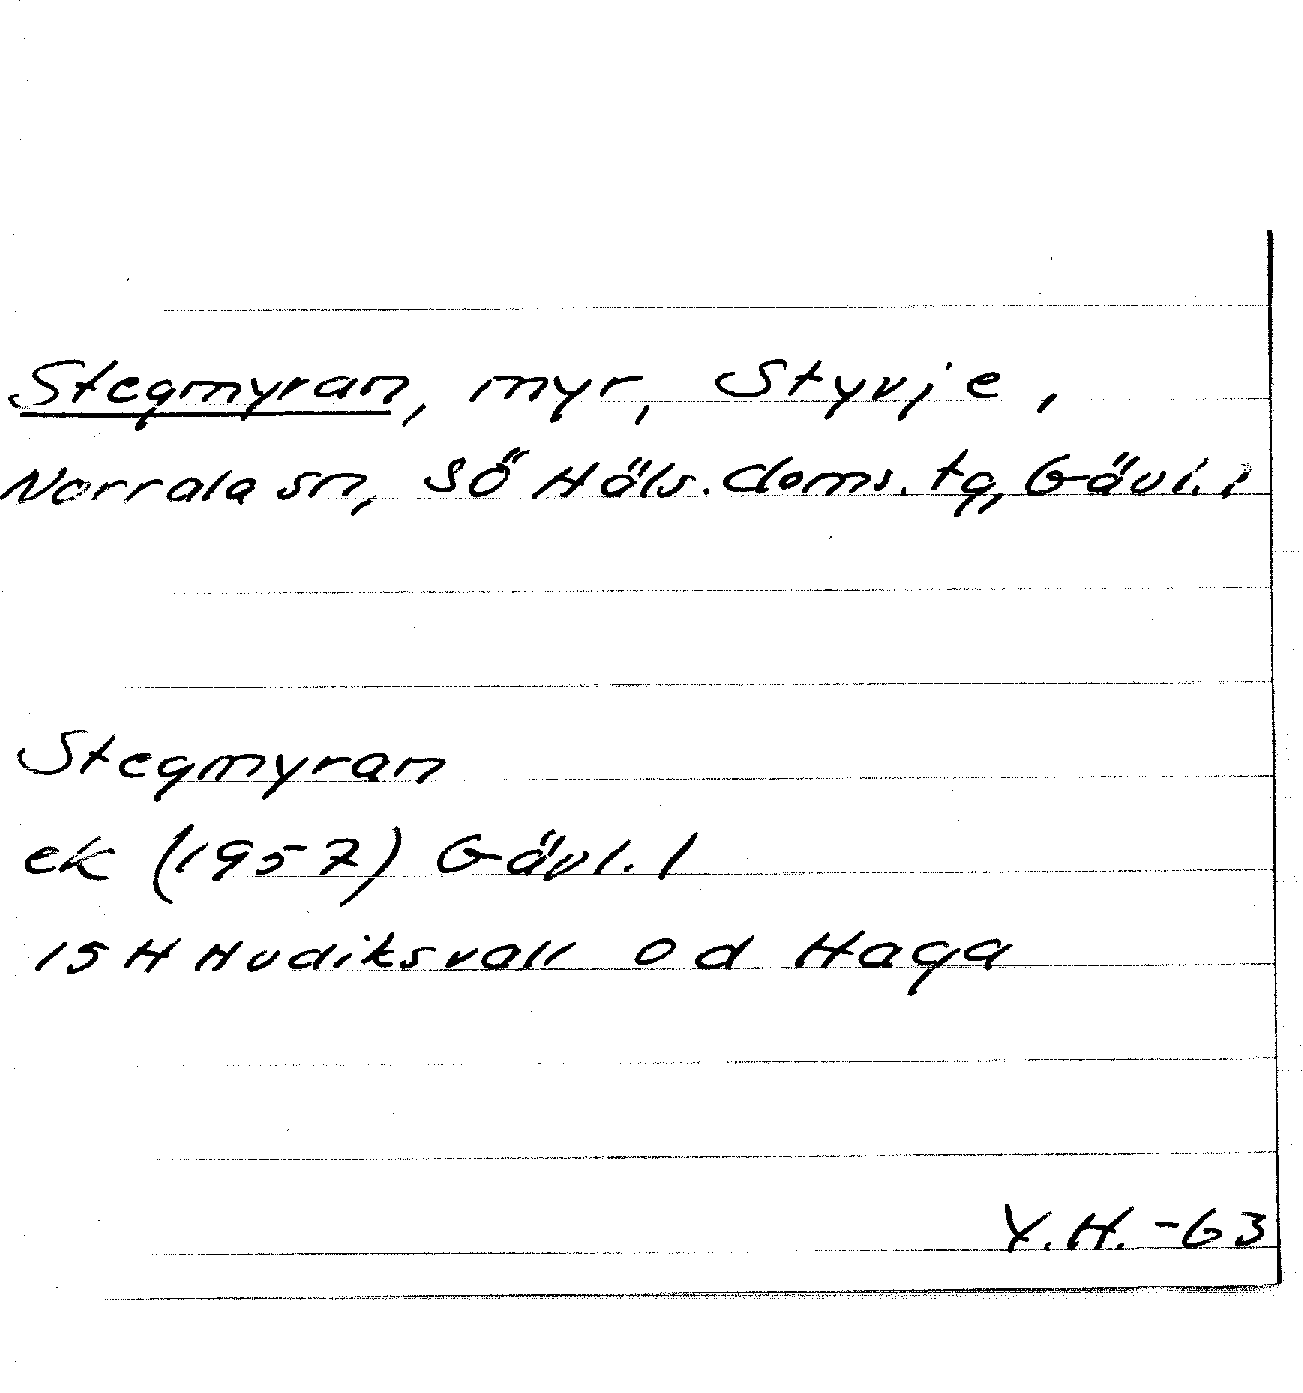 Stegmyran, myr, Styvje,
Norrala sn, SÖ Häls. doms. tg, Gävl. l
Stegmyran
ek (1957) Gävl. l
15 H Hudiksvall o d Haga
Y.H. -63